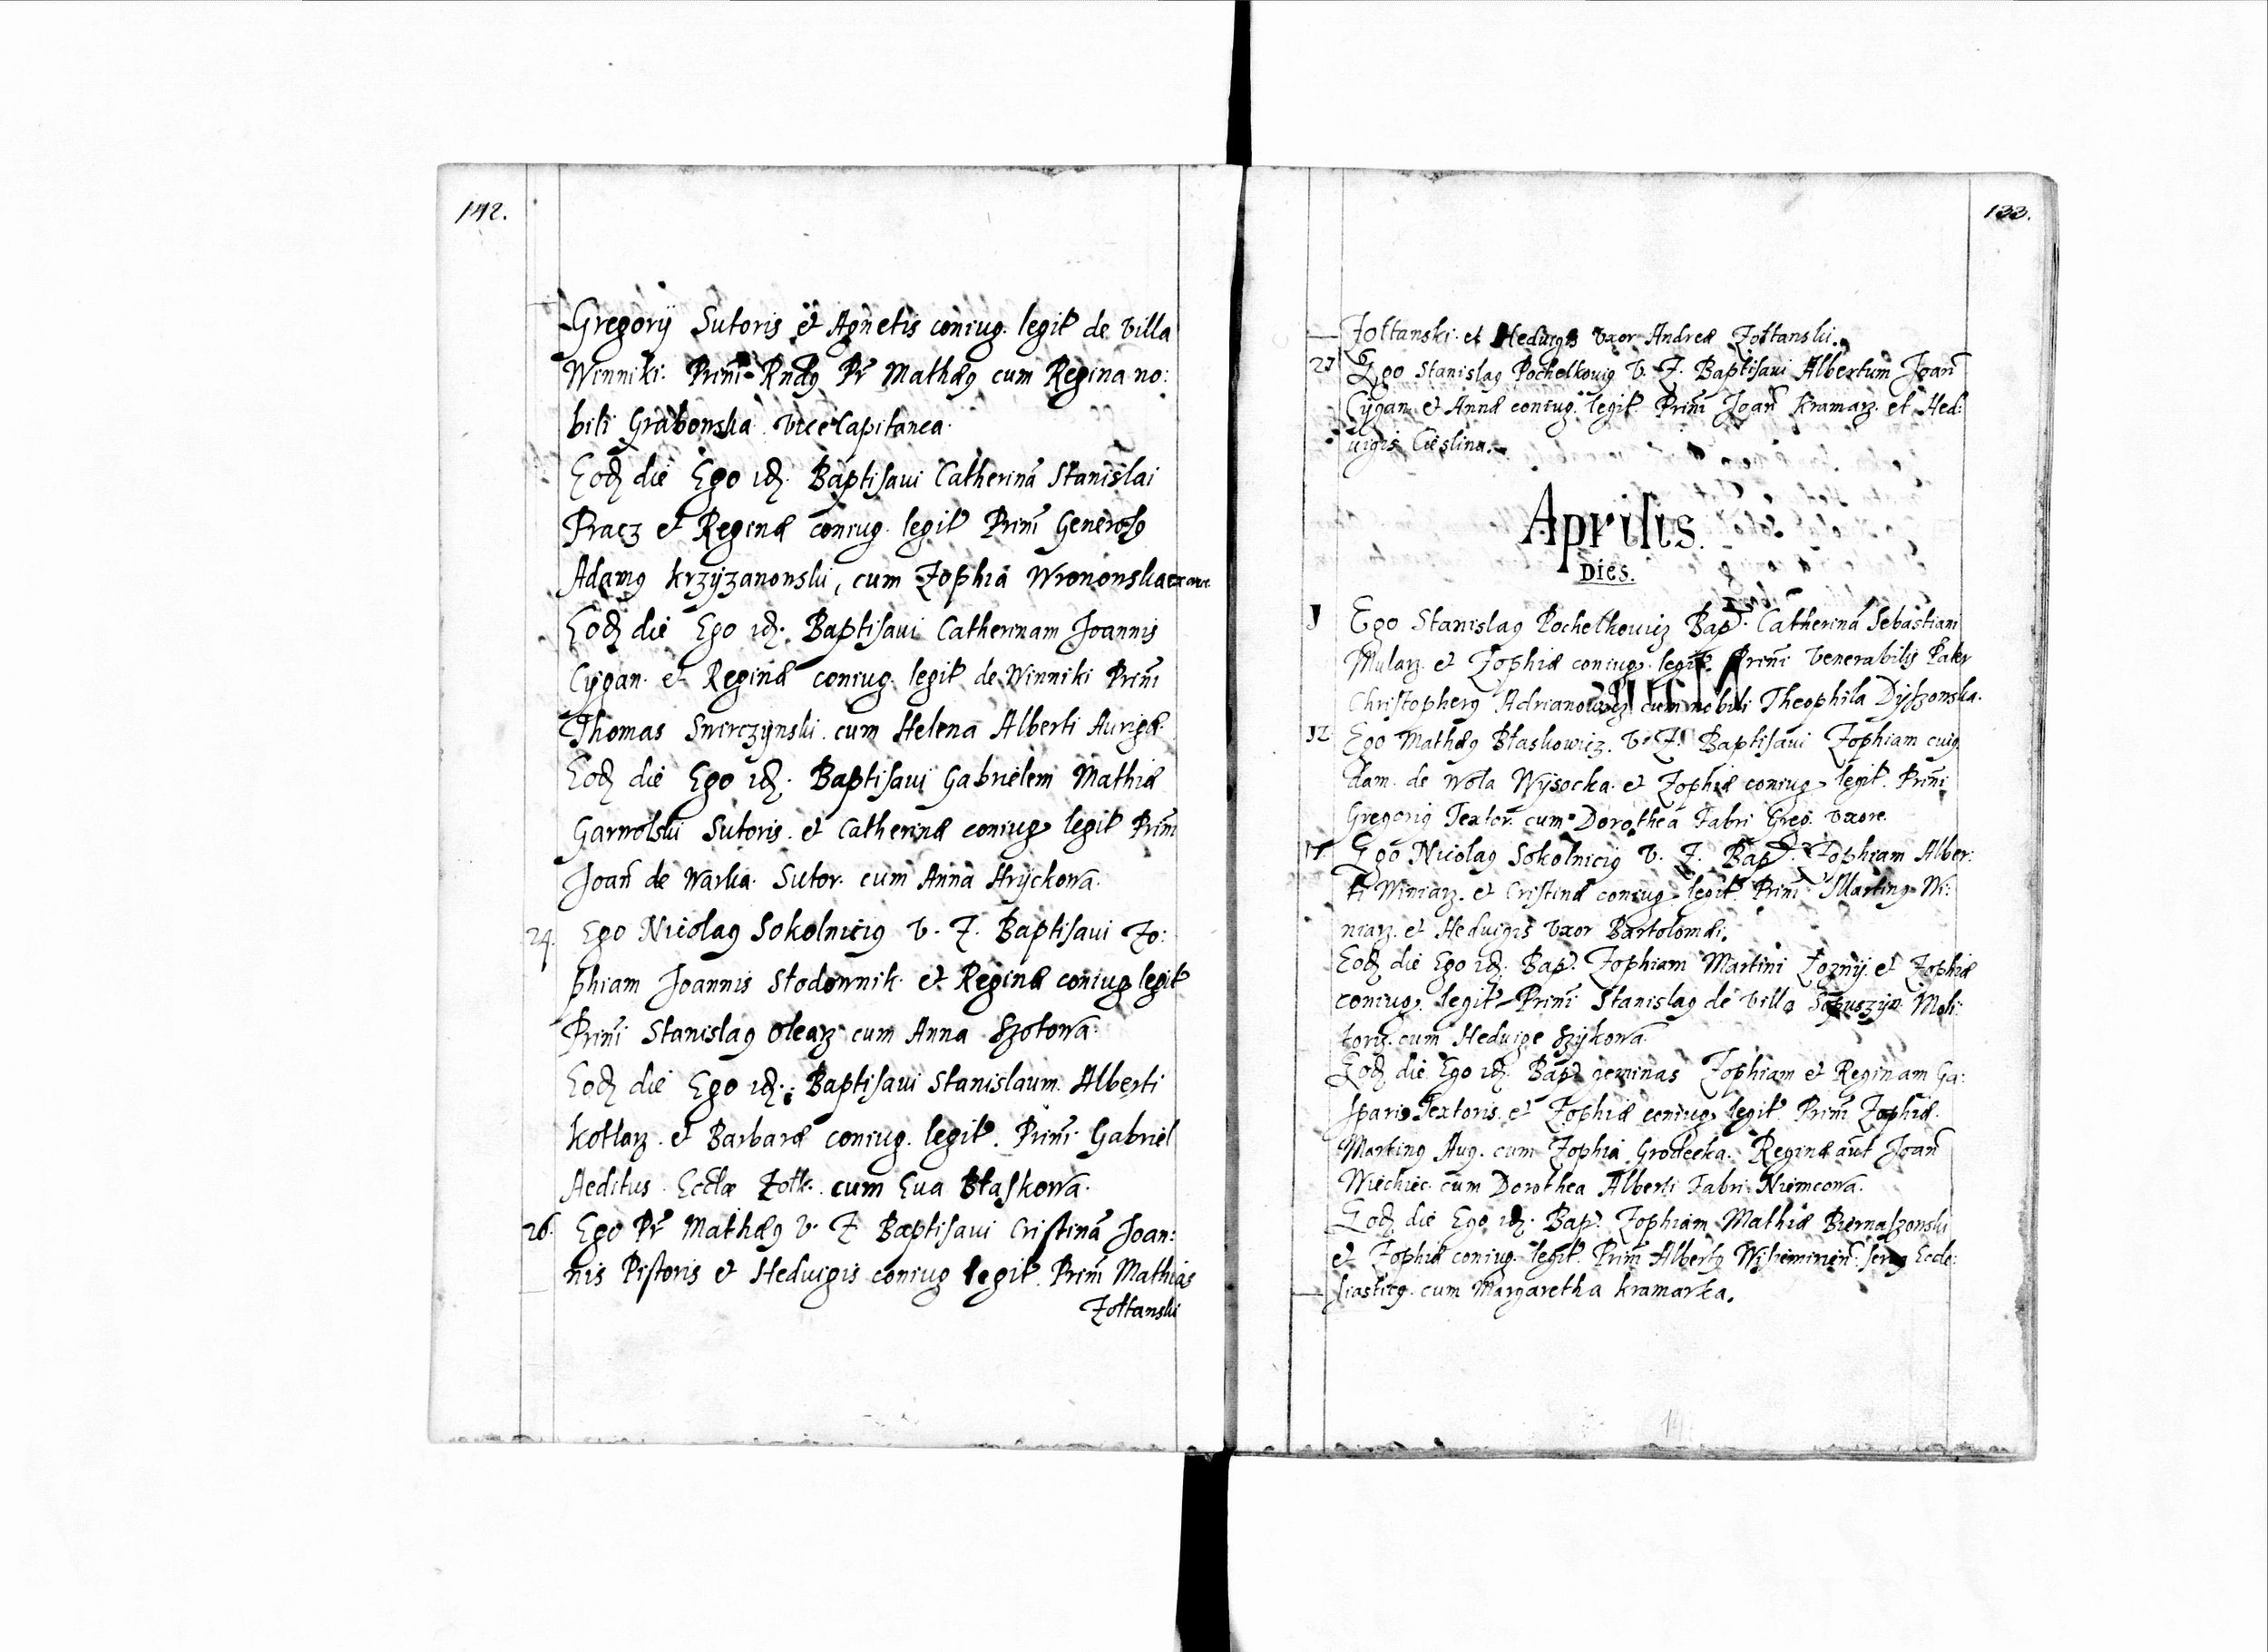 142.
Gregorij Sutoris et Agnetis coniug. legit de villa
Winniki. Prim̄ Rndꝯ Pr̄ Mathæꝯ cum Regina no:
bili Grabonska viceCapitanea.
Eod die Ego id. Baptisaui Catherinā Stanislai
Pracz et Reginæ coniug. legit Prim̄ Generosꝯ
Adamꝯ Krzyzanonski, cum Zophia Wrononska
Eod die Ego id. Baptisaui Catherinam Joannis
Cygan. et Reginæ coniug. legit de Winniki Prim̄
Thomas Swirczynski. cum Helena Alberti Aurigæ.
Eod die Ego id. Baptisaui Gabrielem Mathiæ
Garnolski Sutoris. et Catherinæ coniug legit Prim̄
Joan̄ de Warka. Sutor. cum Anna Hryckowa.
24. Ego Nicolaꝯ Sokolniciꝯ V. Z. Baptisaui Zo:
phiam Joannis Stodownik. et Reginæ coniug legit
Prim̄ Stanislaꝯ Olearz cum Anna Szotowa.
Eod die Ego id. Baptisaui Stanislaum. Alberti
Kotlarz. et Barbaræ coniug. legit. Prim̄ Gabriel
Aeditus. Eccłæ Zolk. cum Eua Błaskowa.
26. Ego Pr̄ Mathæꝯ V. Z Baptisaui Cristinā Joan:
nis Pistoris et Heduigis coniug legit. Prim̄ Mathias
Zołtanski
133.
Zołtanski. et Heduigis vxor Andreæ Zołtanski.
27 Ego Stanislaꝯ Pochelkouiꝯ V. Z. Baptisaui Albertum Joan̄
Cygan. et Annæ coniug. legit. Prim̄ Joan̄ Kramarz. et Hed:
uigis Cieslina.
Aprilis.
DIES.
Ego Stanislaꝯ Pochelkouiz Bap. Catherinā Sebastiani
Mularz. et Zophiæ coniug. legit. Prim̄ Venerabilis Pater
Christopherꝯ Adrianowicz cum nobili Theophila Dyszonska.
12 Ego Mathæꝯ Błaskowicz. V. Z. Baptisaui Zophiam cuiꝯ
dam. de Wola Wysocka. et Zophiæ coniug legit. Prim̄
Gregoriꝯ Textor. cum Dorothea Fabri Greg. vxore.
Ego Nicolaꝯ Sokolniciꝯ V. Z. Bap. Zophiam Alber:
ti Winiarz. et Cristinæ coniug. legit. Prim̄ Martinꝯ Wi:
niarz. et Heduigis vxor Bartolomæi.
Eod die Ego id. Bap. Zophiam Martini et Zophiæ
coniug. legit Prim̄ Stanislaꝯ de villa Moli:
toris. cum Heduige Szykowa.
Eod die Ego id. Bap. geminas Zophiam et Reginam Ga:
sparis Textoris. et Zophiæ coniug. legit. Prim̄ Zophiæ.
Martinꝯ Aug. cum Zophia Grodecka. Reginæ aut̄ Joan̄
Wiechiec. cum Dorothea Alberti Fabri Niemcowa.
Eod die Ego id. Bap. Zophiam Mathiæ Biernaszonski
et Zophiæ coniug. legit. Prim̄ Albertꝯ Eccle:
siasticꝯ. cum Margaretha Kramarka.